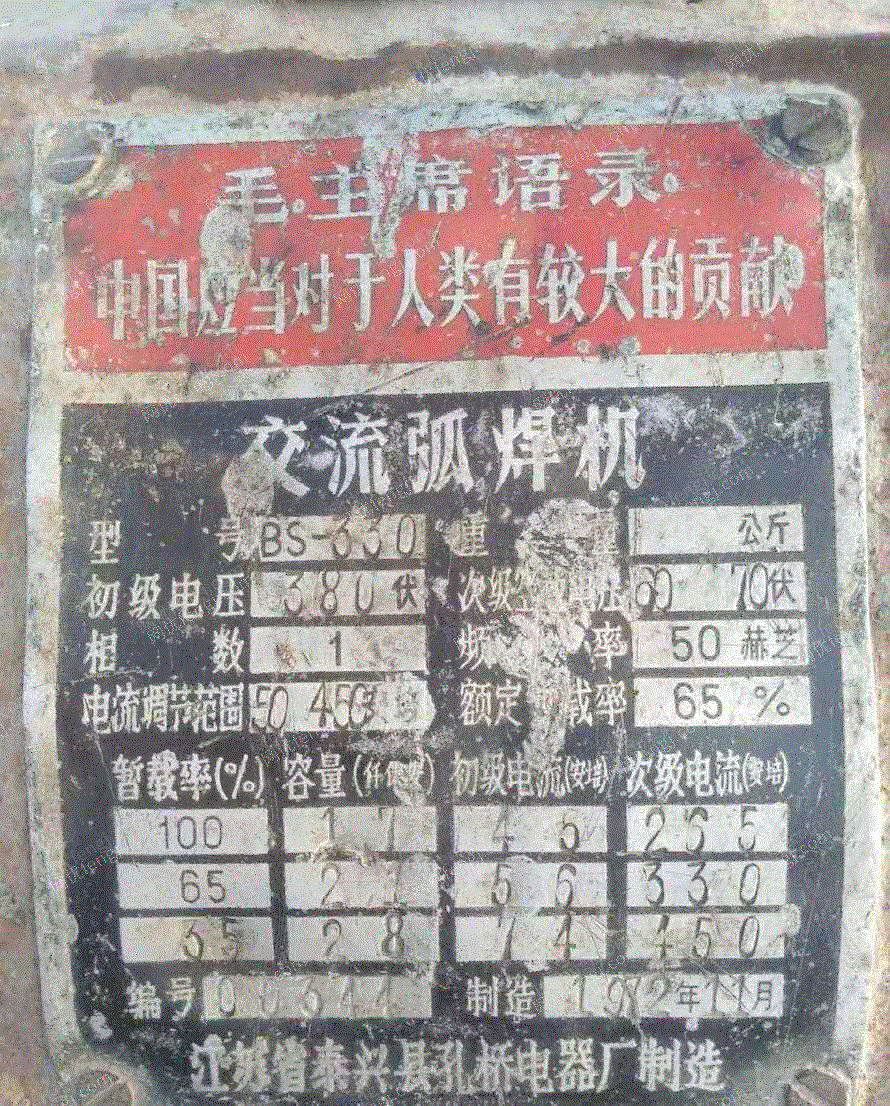 毛主席语录
中国应当对于人类有较大的贡献
交流弧焊机
型号 BS-330 重量 公斤
初级电压 380伏 次级空 电压 60 70伏
相数 1 频率 50赫芝
电流调节范围 50 450 额定 载率 65%
暂载率(%) 容量 初级电流(安培) 次级电流(安培)
100 17 45 265
65 2 56 330
35 28 74 450
编号 00344 制造 1972年11月
江苏省泰兴县孔桥电器厂制造